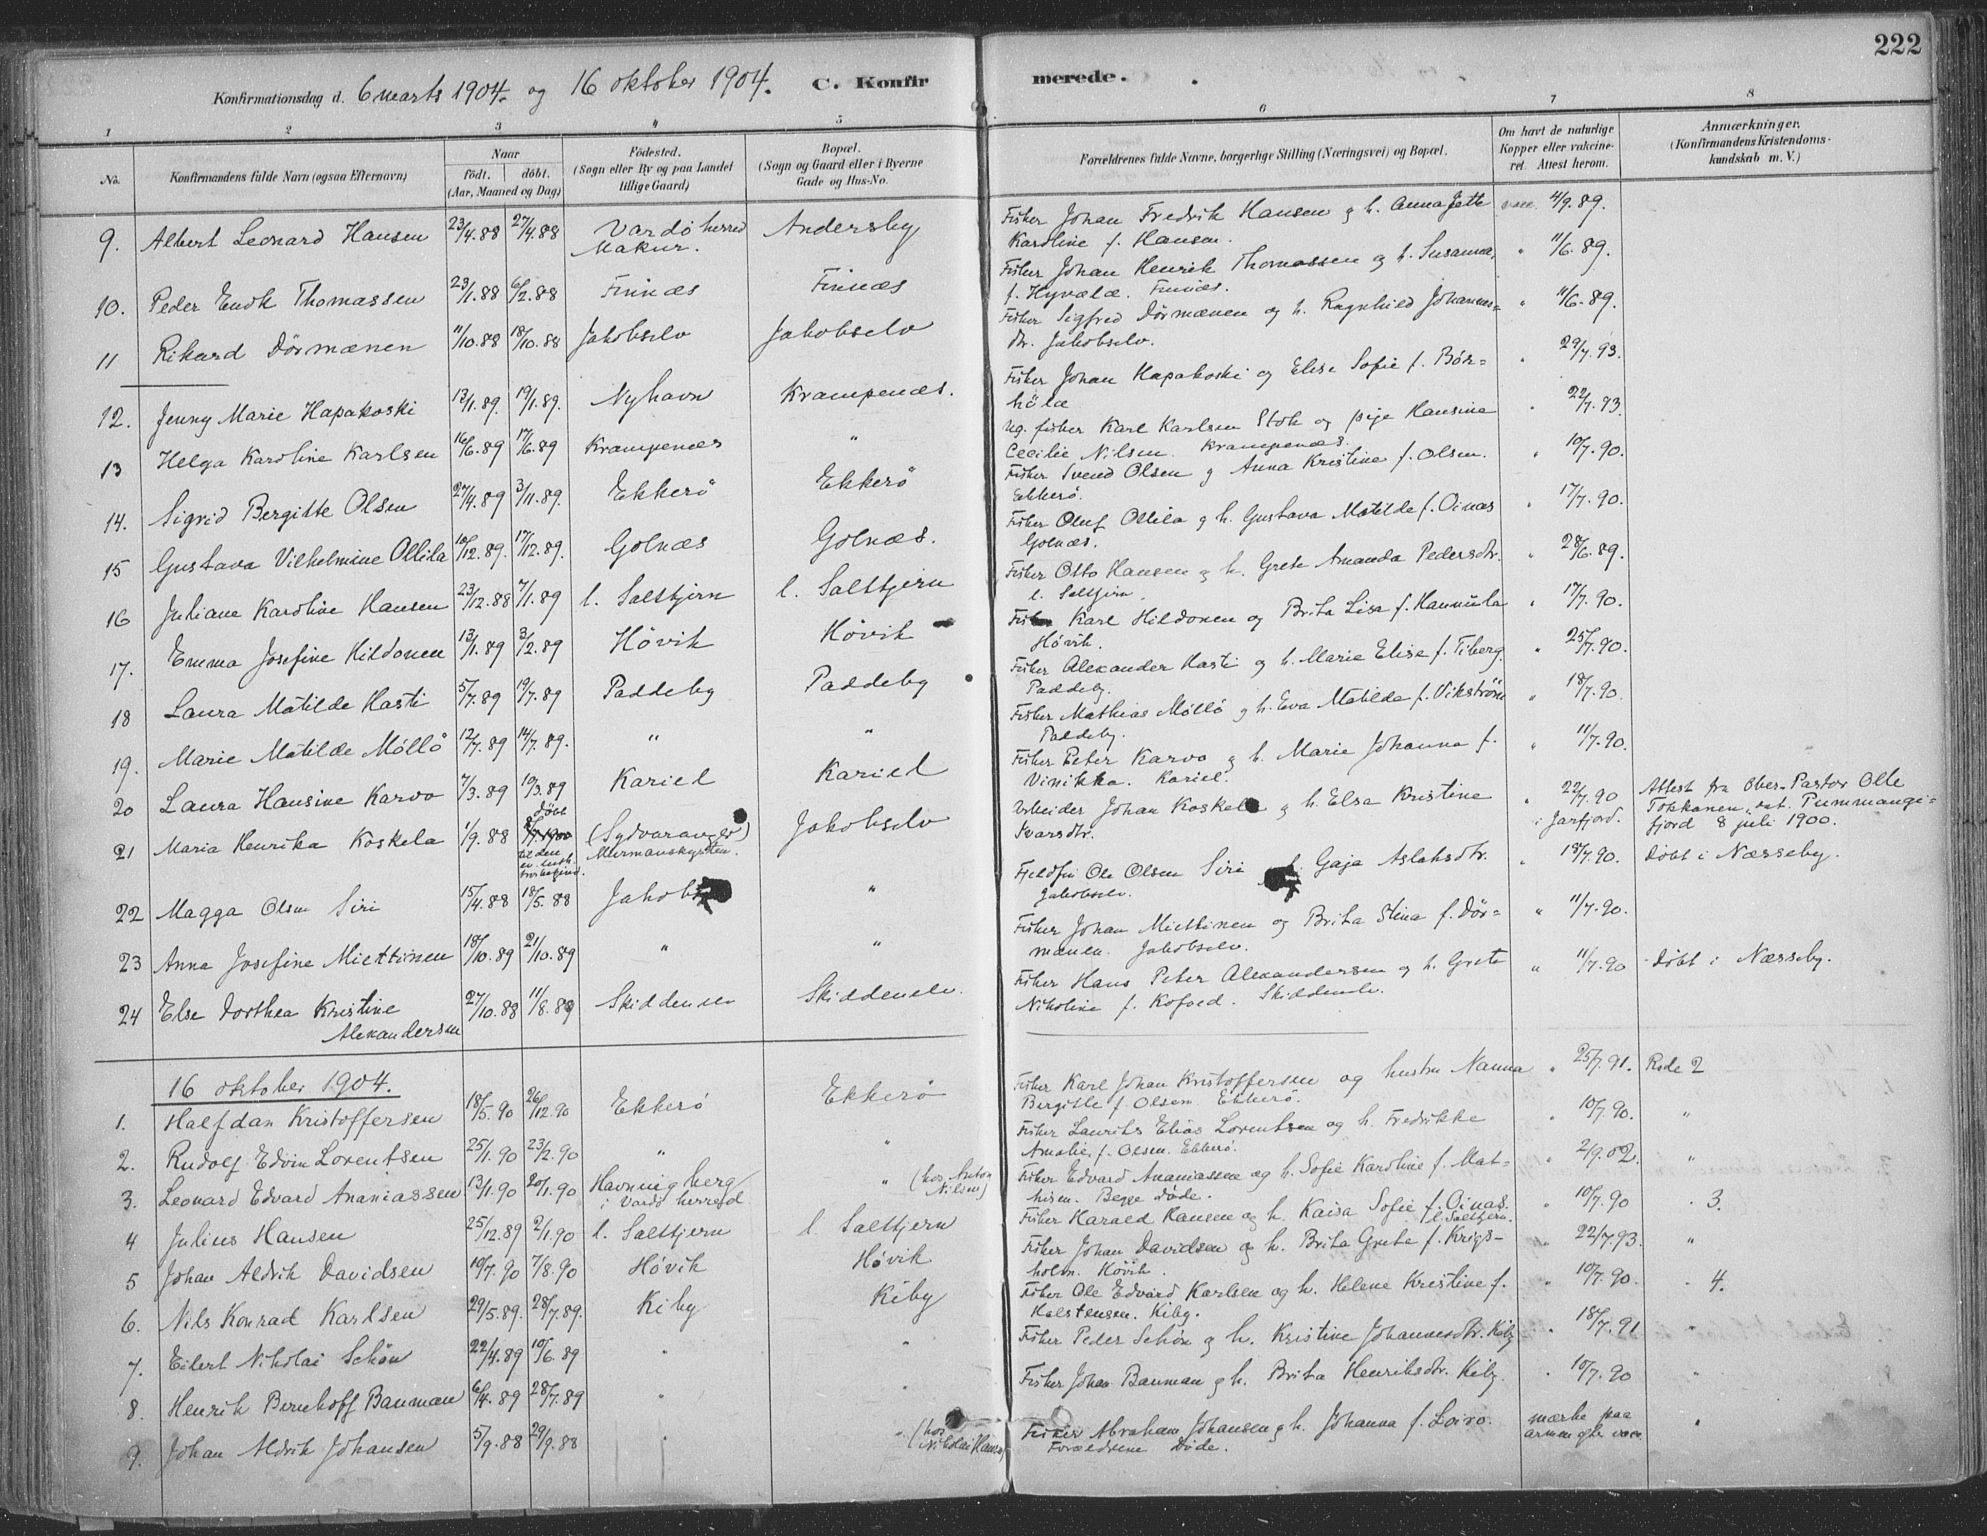 222
Konfirmationsdag d. 6 marts 1904. og 16 oktober 1904. C. Konfir merede.
1 2 3 4 5 6 7 8
No. Konfirmandens fulde Navn (ogsaa Efternavn) Naar født. døbt. (Aar, Maaned og Dag) Fødested. (Sogn eller By og paa Landet tillige Gaard) Bopæl. (Sogn og Gaard eller i Byerne Gade og Hus-No. Forældrenes fulde Navne, borgerlige Stilling (Næringsvei) og Bopæl. Om havt de naturlige Kopper eller vaccineret. Attest herom. Anmærkninger. (Konfirmandens Kristendomskundskab m. V.)
9. Albert Leonard Hansen 23/4.88 27/4.88 Vardø herred Makur. Andersby Fisker Johan Fredrik Hansen g h. Anna Jette vacc. 11/9.89.
Karoline f. Hansen.
10. Peder Enok Thomassen 23/1.88 6/2.88 Finnæs Finnæs Fisker Johan Henrik Thomassen og h. Susanna, " 11/6.89.
f. Hyvälä. Finnæs.
11 Rikard Dørmænen 11/10.88 18/10.88 Jakobselv Jakobselv Fisker Sigfred Dørmænen og h. Ragnhild Johannes= " 11/6.89.
dr. Jakobselv.
12. Jenny Marie Hapakoski 13/1.89. 19/1.89. Nyhavn Krampenæs. Fisker Johan Hapakoski og Elise Sofie f. Bön= " 29/7.93.
hölä
13 Helga Karoline Karlsen 16/6.89 17/6.89 Krampenæs " Ug. fisker Karl Karlsen Stok og pige Hansine " 22/7.93.
Cecilie Nilsen. Krampenæs.
14. Sigrid Bergitte Olsen 27/4.89 3/11.89. Ekkerö Ekkerö Fisker Svend Olsen g Anna Kristine f. Olsen. " 10/7.90.
Ekkerø.
15 Gustava Vilhelmine Ollila 16/12.89. 17/12.89. Golnæs Golnæs. Fisker Oluf Ollila g h. Gustava Matilde f. Oinas " 17/7.90.
Golnæs.
16 Juliane Karoline Hansen 23/12.88 7/1.89 l. Saltbjern l. Saltbjern Fisker Otto Hansen g h. Grete Amanda Pedersdtr. " 28/6.89.
l. Saltbjern.
17. Emma Josefine Hildonen 13/1.89 3/2.89 Høvik Høvik Fisker Karl Hildonen og Brita Lisa f. Hannula " 17/7.90.
Høvik.
18 Laura Matilde Hasti 5/7.89 19/7.89 Paddeby Paddeby Fisker Alexander Hasti og h. Marie Elise f. Tiberg. " 25/7.90.
Paddeby.
19. Marie Matilde Møllö 12/7.89 14/7.89. " " Fisker Mathias Møllö g h. Eva Matilde f. Vikström " 18/7.90.
Paddeby.
20 Laura Hansine Karvo 7/3.89 10/3.89 Kariel Kariel Fisker Peter Karvo g h. Marie Johanna f. " 11/7.90.
Vinikka. Kariel.
21 Maria Henrika Koskela 1/9.88 døbt til den (Sydvaranger) Murmanskysten. Jakobselv Arbeider Johan Koskela g h. Elsa Kristine " 22/7.90 i Jarfjord. Attest fra Ober-Pastor Olle
Ivarsdtr. Tokkanen, dat. Pummangifjord 8 juli 1900.
22 Magga Olsen Siri 15/4.88 18/5.88 Jakobs " Fjeldfin Ole Olsen Siri Gaja Aslaksdtr. " 18/7.90. Døbt i Næsseby.
Jakobselv.
23 Anna Josefine Miettinen 18/10.89 21/10.89 " " Fisker Johan Miettinen og Brita Stina f. Dör= " 11/7.90.
mänen. Jakobselv.
24 Else Dorthea Kristine Alexandersen 27/10.88 11/8.89 Skiddenelv Skiddenelv. Fisker Hans Peter Alexandersen og h. Grete " 11/7.90 Døbt i Næsseby.
Nikoline f. Kofoed. Skiddenelv.
16 oktober 1904.
1. Halfdan Kristoffersen 18/5.90 26/12.90 Ekkerö Ekkerö Fisker Karl Johan Kristoffersen og hustru Nanna " 25/7.91. Rode 2
Bergitte f. Olsen. Ekkerö.
2. Rudolf Edvin Lorentsen 25/1.90 23/2.90 " " Fisker Laurits Elias Lorentsen og h. Fredrikke " 10/7.90. "
Amalie, f. Olsen. Ekkerö.
3. Leonard Edvard Ananiassen 13/1.90 20/1.90 Havningberg i Vardø herred. " (hos Anton Nilsen) Fisker Edvard Ananiassen og h. Sofie Karoline f. Mat- " 2/9.02. "
hisen. Begge døde.
4 Julius Hansen 25/12.89 2/1.90 l. Saltbjern l. Saltbjern Fisker Harald Hansen og h. Kaisa Sofie f. Oinas. l. Saltbjern. " 10/7.90 . 3.
5 Johan Aldrik Davidsen 19/7.90 7/8.90 Høvik Høvik Fisker Johan Davidsen og h. Brita Greta f. Krigs- " 22/7.93. "
holm. Høvik.
6. Nils Konrad Karlsen 29/5.89. 28/7.89. Kiby Kiby Fisker Ole Edvard Karlsen og h. Helene Kristine f. " 10/7.90. . 4.
Halstensen. Kiby.
7. Eilert Nikolai Schøn 22/4.89 10/6.89 " " Fisker Peder Schøn g h. Kristine Johannesdtr. Kiby " 18/7.91 "
8. Henrik Bernhoff Bauman 6/4.89 28/7.89 " " Fisker Johan Bauman g h. Brita Henriksdtr. Kiby. " 10/7.90 "
9. Johan Aldrik Johansen 5/9.88 29/9.88 " " (hos Nikolai Hansen) Fisker Abraham Johansen g h. Johanna f. Loiro. mærke paa armen efter vacc. "
Forældrene Døde.